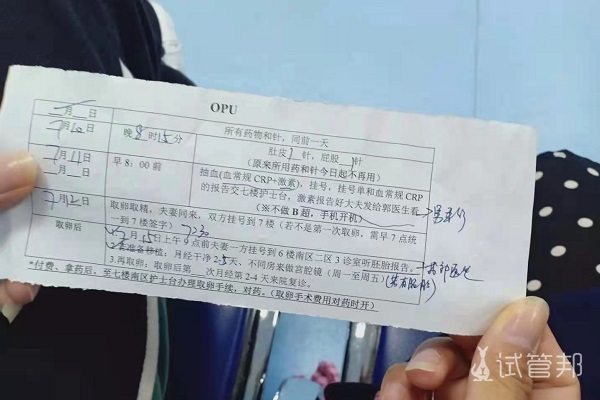 OPU
月 日
7月10日 晚8时15分 所有药物和针，同前一天
肚皮1针，屁股 针
(原来所用药和针今日起不再用)
7月11日
月 日
早8：00前
抽血(血常规CRP+激素)，挂号，挂号单和血常规CRP
的报告交七楼护士台，激素报告好大夫发给郭医生看
(※不做B超，手机开机)
7月12日 取卵取精，夫妻同来，双方挂号到7楼（若不是第一次取卵，需早7点统
一到7楼签字） 7:30
取卵后
7月15日上午9点前夫妻一方挂号到6楼南区二区3诊室听胚胎报告。
2.准备移植：月经干净2-5天，不同房来做宫腔镜（周一至周五）
3.再取卵：取卵后第 次月经第2-4天来院复诊。
*付费、拿药后，至七楼南区护士台办理取卵手续，对药。（取卵手术费用对药时开）
试管邦